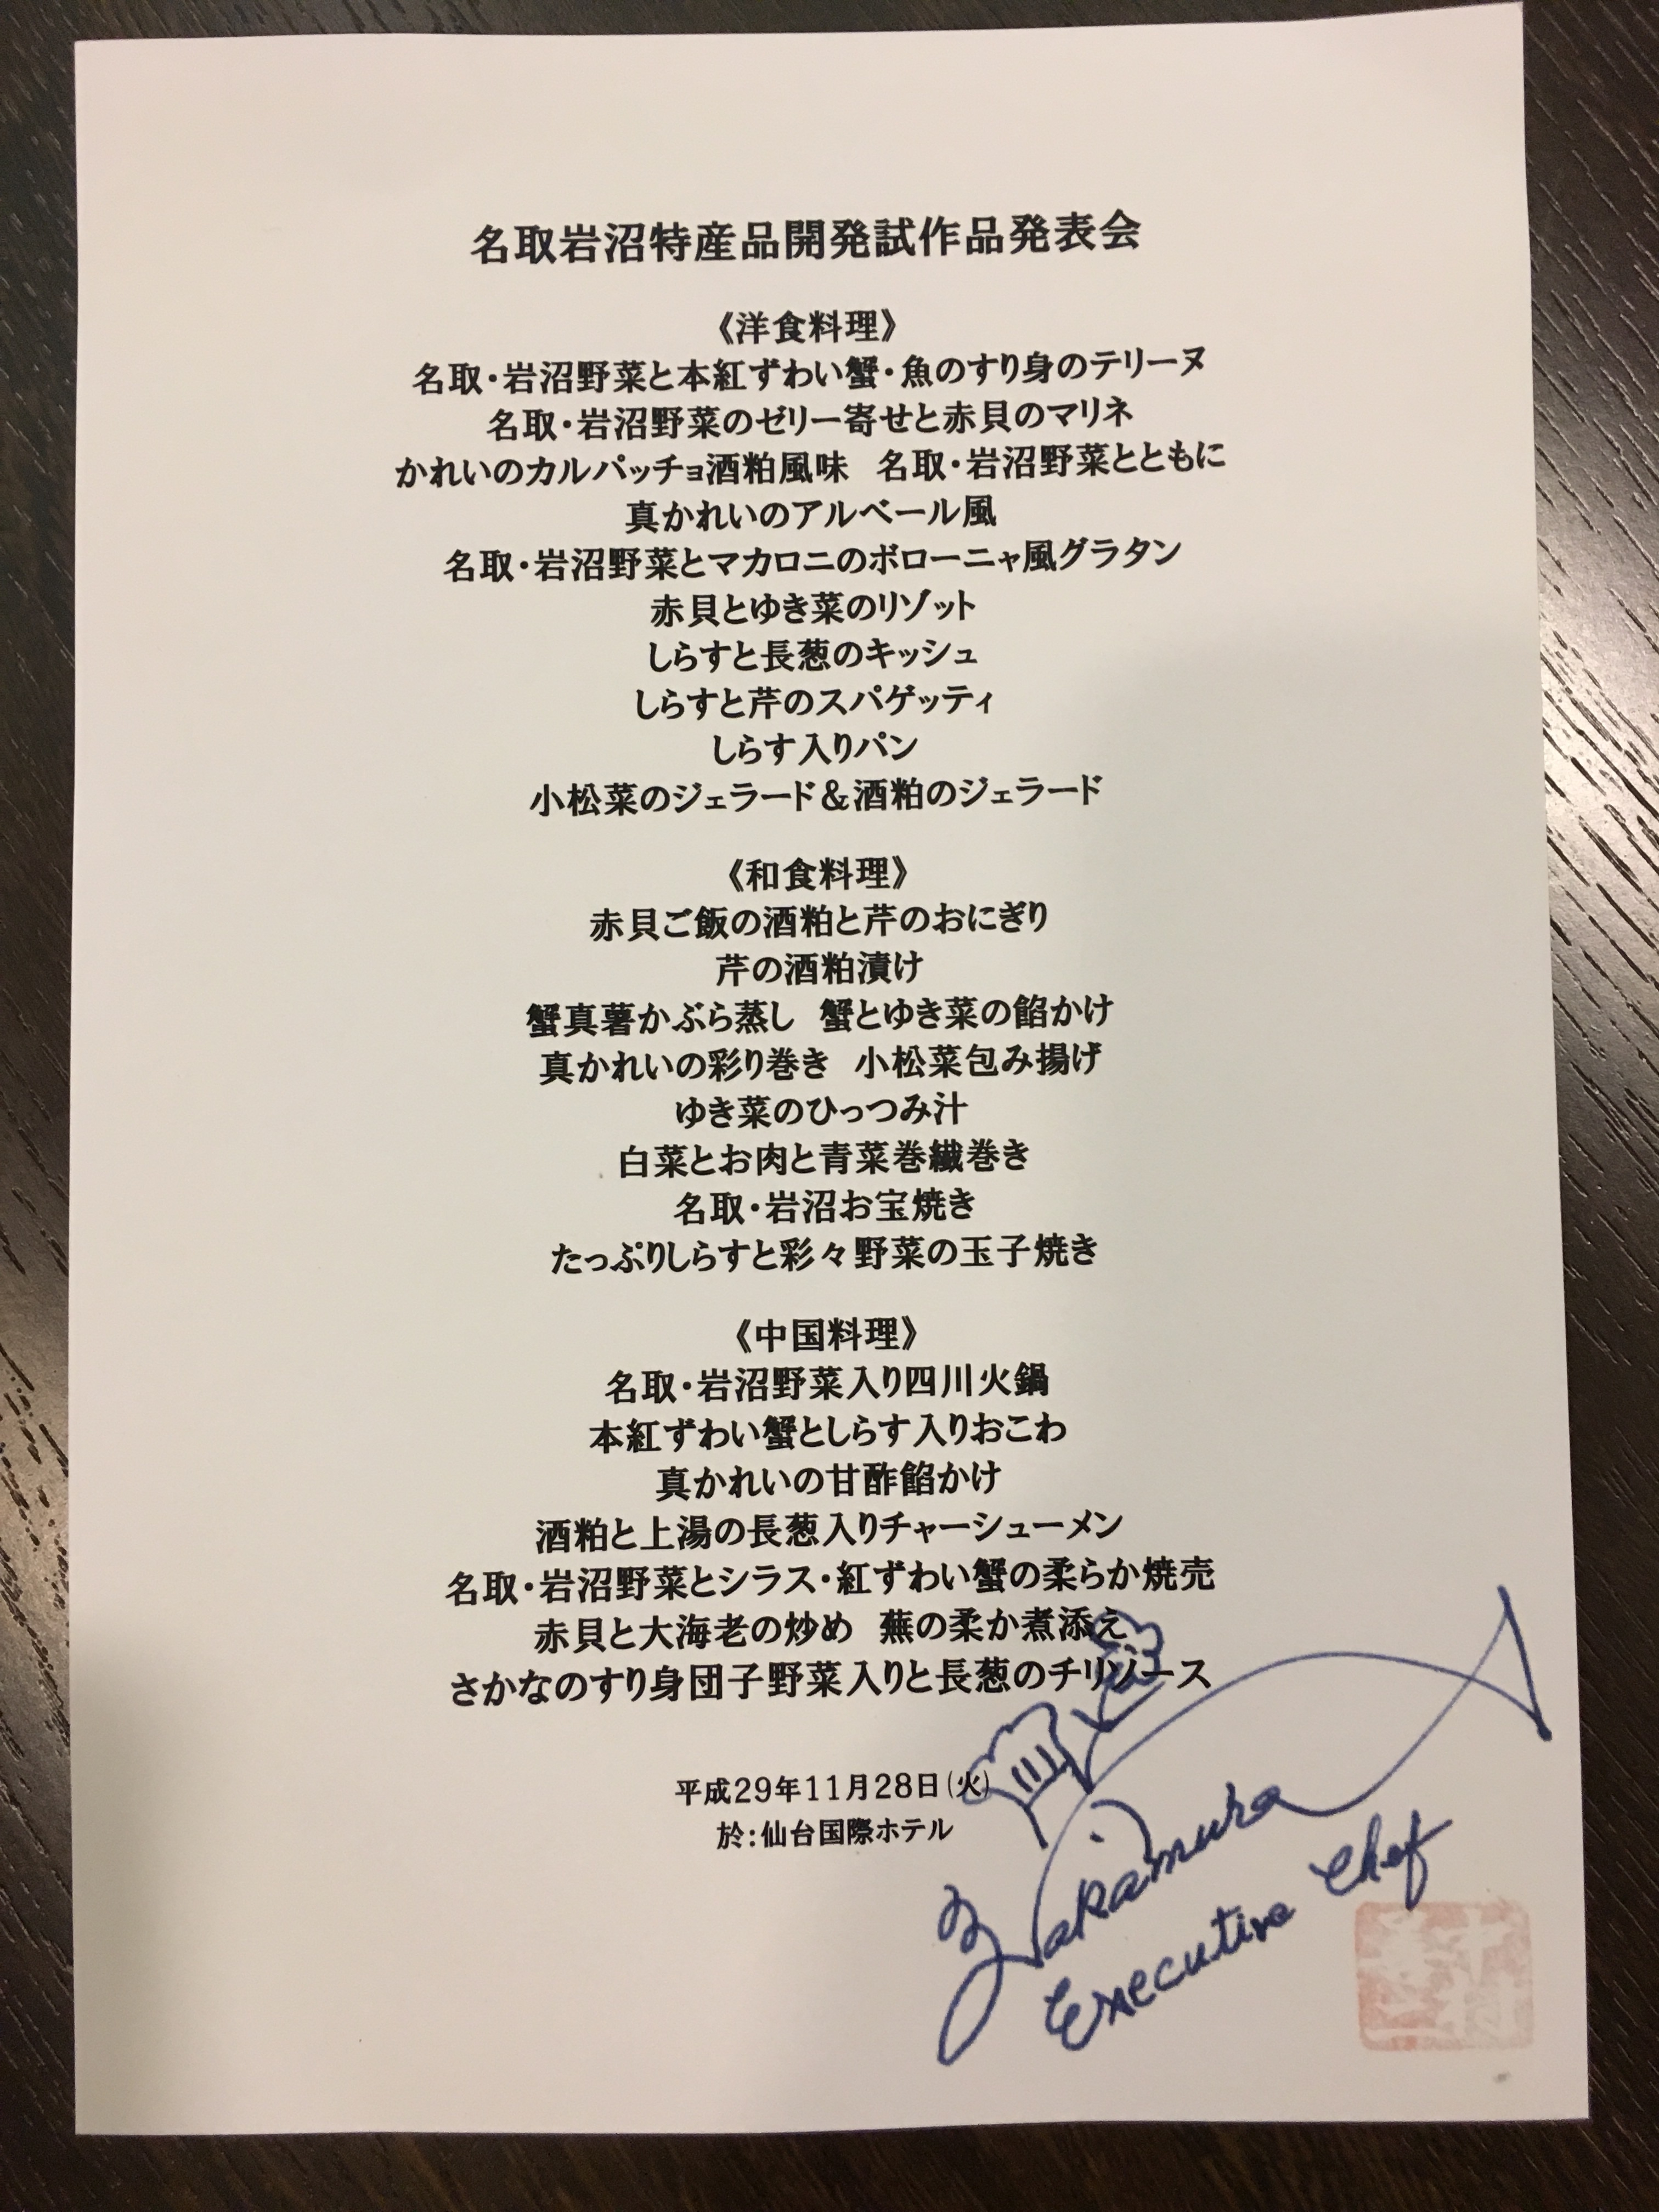 名取岩沼特産品開発試作品発表会
《洋食料理》
名取・岩沼野菜と本紅ずわい蟹・魚のすり身のテリーヌ
名取・岩沼野菜のゼリー寄せと赤貝のマリネ
かれいのカルパッチョ酒粕風味　名取・岩沼野菜とともに
真かれいのアルベール風
名取・岩沼野菜とマカロニのボローニャ風グラタン
赤貝とゆき菜のリゾット
しらすと長葱のキッシュ
しらすと芹のスパゲッティ
しらす入りパン
小松菜のジェラード＆酒粕のジェラード
《和食料理》
赤貝ご飯の酒粕と芹のおにぎり
芹の酒粕漬け
蟹真薯かぶら蒸し　蟹とゆき菜の餡かけ
真かれいの彩り巻き　小松菜包み揚げ
ゆき菜のひっつみ汁
白菜とお肉と青菜巻繊巻き
名取・岩沼お宝焼き
たっぷりしらすと彩々野菜の玉子焼き
《中国料理》
名取・岩沼野菜入り四川火鍋
本紅ずわい蟹としらす入りおこわ
真かれいの甘酢餡かけ
酒粕と上湯の長葱入りチャーシューメン
名取・岩沼野菜とシラス・紅ずわい蟹の柔らか焼売
赤貝と大海老の炒め　蕪の柔か煮添え
さかなのすり身団子野菜入りと長葱のチリソース
平成29年11月28日(火)
於：仙台国際ホテル
Nakamura
Executive Chef